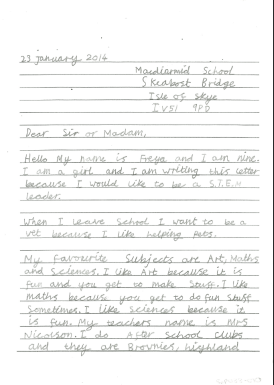 23 January 2014
Macdiarmid School
Skeabost Bridge
Isle of Skye
IV51 9PD
Dear Sir or Madam,
Hello My name is Freya and I am nine.
I am a girl and I am writing this letter
because I would like to be a S.T.E.M
leader.
When I leave School I want to be a
vet because I like helping Pets.
My favourite Subjects are Art, Maths
and Sciences. I like Art because it is
fun and you get to make Stuff. I like
maths because you get to do fun stuff
Sometimes. I like Sciences because it
is fun. My teachers name is Mrs
Nicolson. I do After School clubs
and they are Brownies, highland